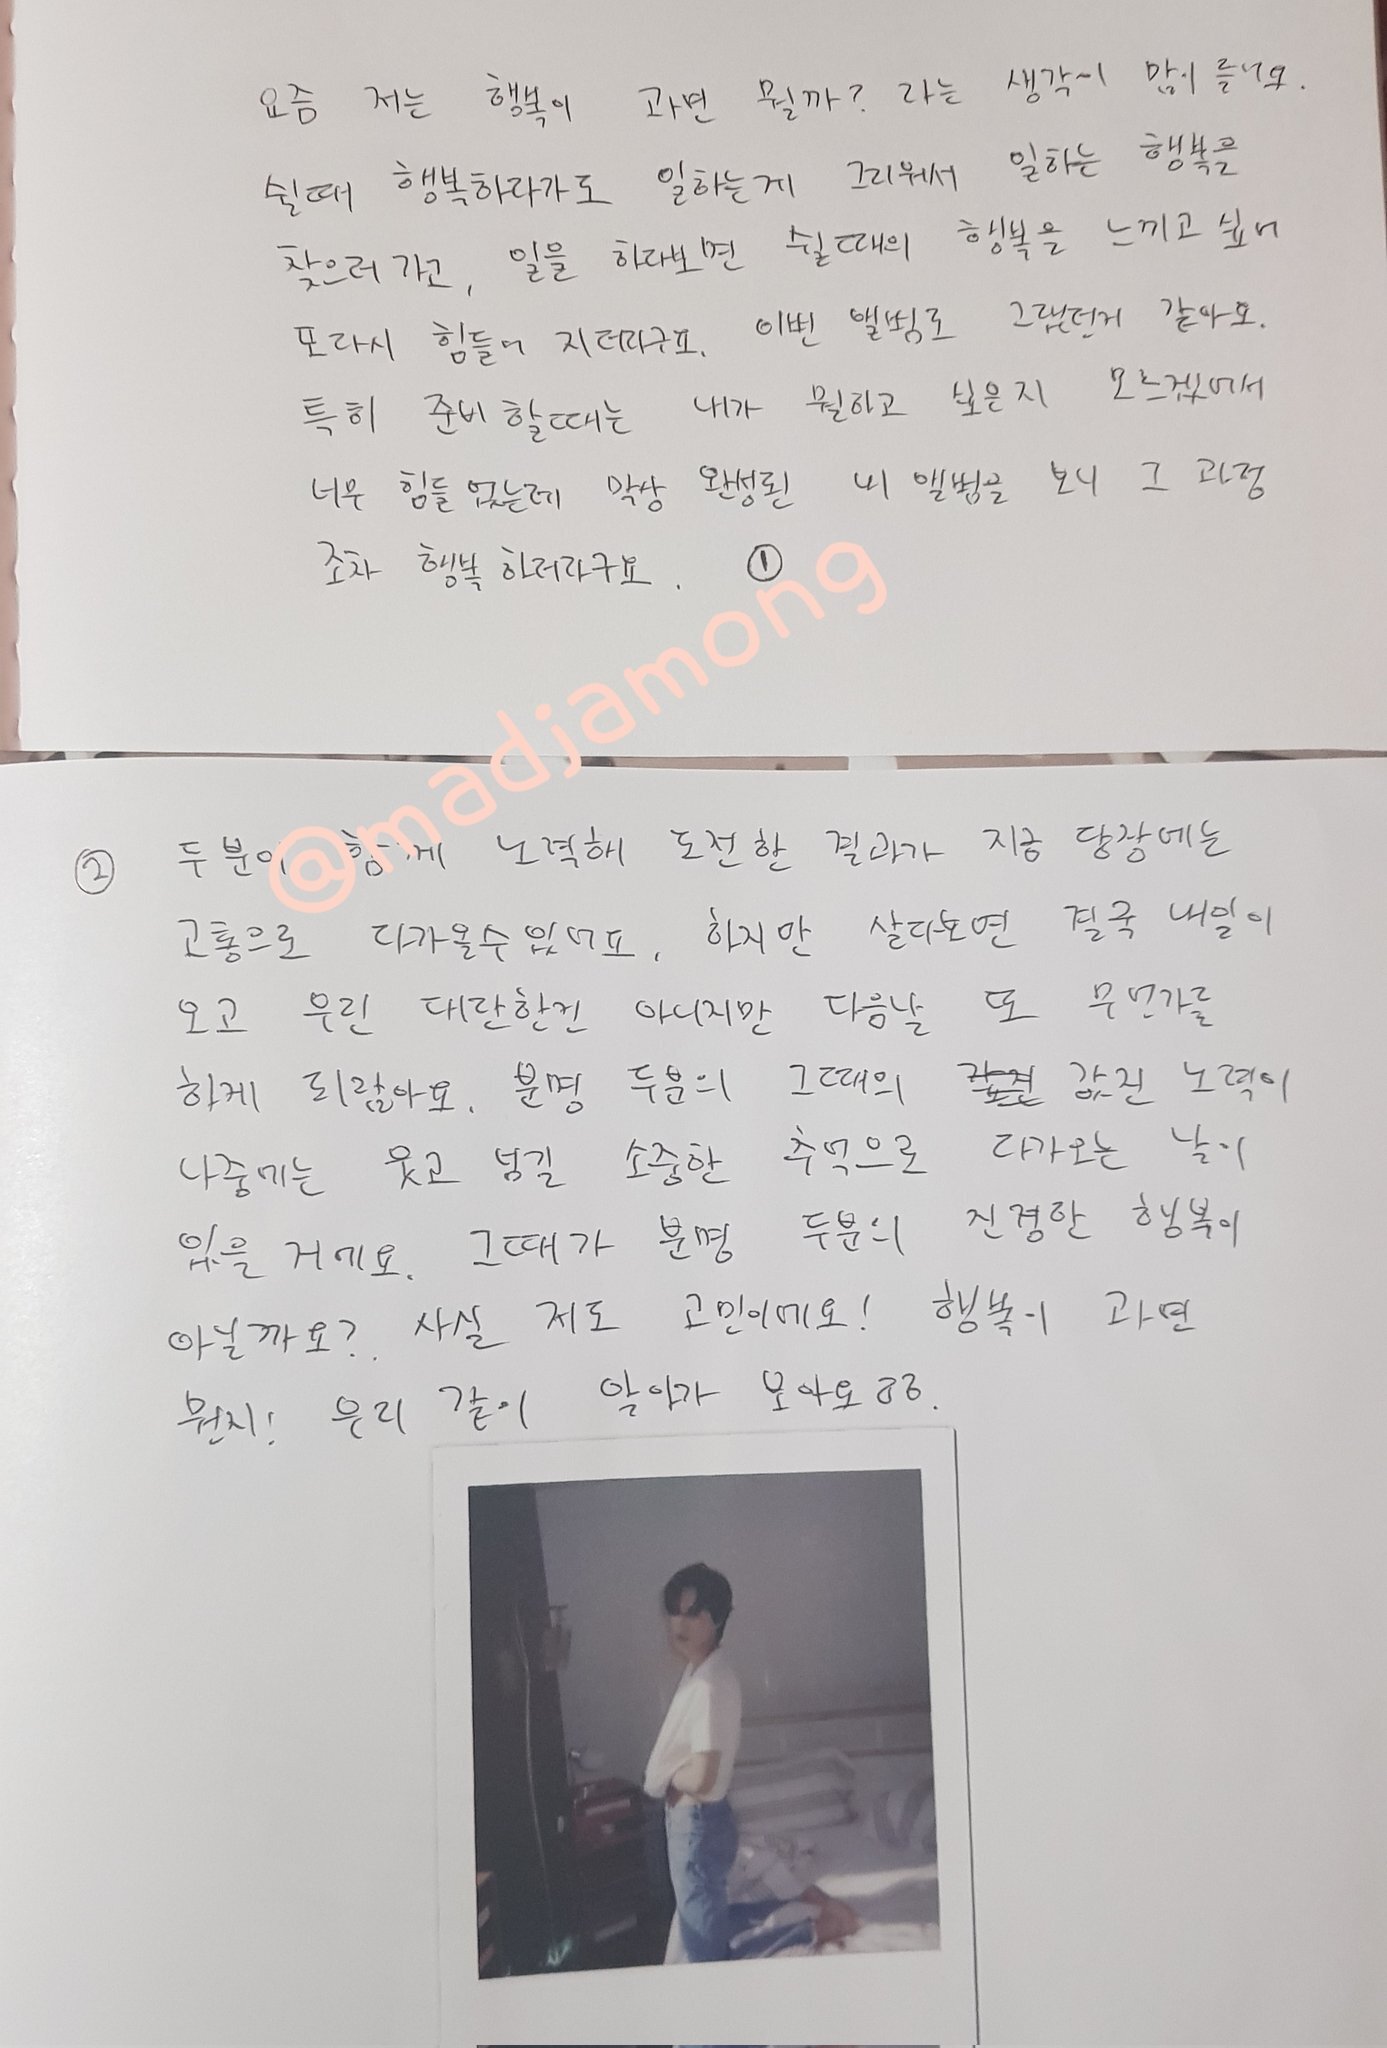 요즘 저는 행복이 과연 뭘까? 라는 생각이 많이 들어요.
쉴때 행복하다가도 일하는게 그리워서 일하는 행복을
찾으러 가고, 일을 하다보면 쉴때의 행복을 느끼고 싶어
또다시 힘들어 지더라구요. 이번 앨범도 그랬던거 같아요.
특히 준비 할때는 내가 뭘하고 싶은지 모르겠어서
너무 힘들었는데 막상 완성된 내 앨범을 보니 그 과정
조차 행복 하더라구요. ①
@madjamong
② 두분이 함께 노력해 도전한 결과가 지금 당장에는
고통으로 다가올수있어요. 하지만 살다보면 결국 내일이
오고 우린 대단한건 아니지만 다음날 또 무언가를
하게 되잖아요. 분명 두분의 그때의 값진 노력이
나중에는 웃고 넘길 소중한 추억으로 다가오는 날이
있을 거에요. 그때가 분명 두분의 진정한 행복이
아닐까요? 사실 저도 고민이에요! 행복이 과연
뭔지! 우리 같이 알아가 보아요